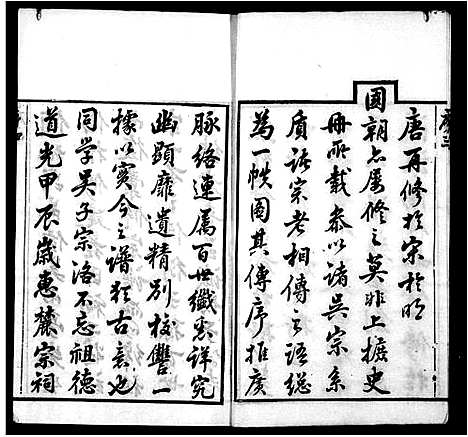 唐再修於宗於明
國朝亦屢修之莫非上摭史
冊所載參以諸吳宗系
質諸宗老相傳之語總
為一帙圖其傳序推廣
脉絡連属百世纖悉詳究
幽顯靡遺精別校讐一
據以實今之譜犹古意也
同学吴子宗洛不忘祖德
道光甲辰歲惠麓宗祠